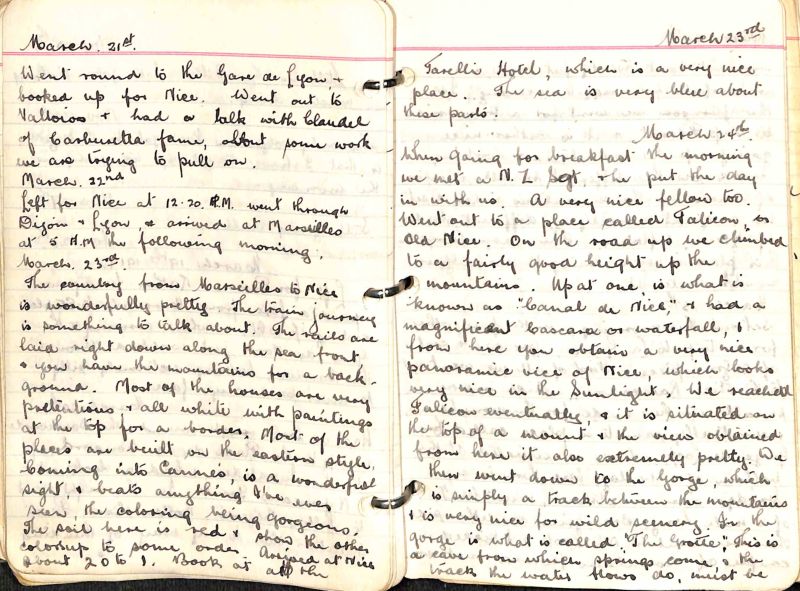 March. 21st.
Went round to the Gare de Lyon, +
booked up for Nice. Went out to
Valloios + had a talk with Claudel
of Carburetta fame, about some work
we are trying to pull on.
March. 22nd
Left for Nice at 12.20. P.M. went through
Dijon + Lyon, + arrived at Marseilles
at 5 A.M the following morning.
March. 23rd
The country from Marseilles to Nice
is wonderfully pretty. The train journey
is something to talk about. The rails are
laid right down along the sea front
+ you have the mountains for a back-
ground. Most of the houses are very
pretentious, + all white with paintings
at the top for a border. Most of the
places are built on the eastern style.
Coming into Cannes, is a wonderful
sight, + beats anything I've ever
seen, the coloring being gorgeous.
The soil here is red + show the other
colors up to some order. Arrived at Nice
about 20 to 1. Book at all the
March 23rd
Tarelli Hotel, which is a very nice
place. The sea is very blue about
these parts.
March 24th.
When going for breakfast the morning
we met a N.Z Sgt, + he put the day
in with us. A very nice fellow too.
Went out to a place called "Falicon", or
Old Nice. On the road up we climbed
to a fairly good height up the
mountains. Up at one, is what is
known as "Canal de Nice", + had a
magnificent Cascara or waterfall, +
from here you obtain a very nice
panoramic vice of Nice, which looks
very nice in the Sunlight. We reached
Falicon eventually, + it is situated on
the top of a mount + the view obtained
from here it also extremely pretty. We
then went down to the Gorge, which
is simply a track between the mountains
+ is very nice for wild scenery. In the
gorge is what is called "The Grotte," This is
a cave from which springs come, + the
track the water flows do, must be